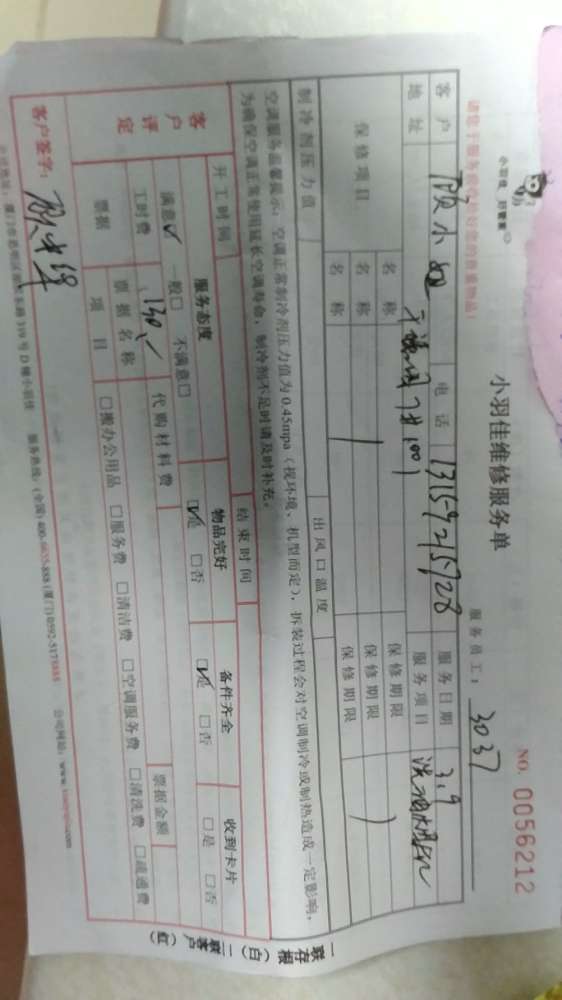 小羽佳 好管家
小羽佳维修服务单
NO. 0056212
请您于服务前收好您的贵重物品!
服务员工: 3037
客户 小姐 电话 13159215928 服务日期 3.9
地址 7#1001 服务项目
保修项目 名称 保修期限
名称 保修期限
名称 保修期限
制冷剂压力值 出风口温度
空调服务温馨提示:空调正常制冷剂压力值为0.45mpa(视环境、机型而定),拆装过程会对空调制冷或制热造成一定影响,
为确保空调正常使用延长空调寿命,制冷剂不足时请及时补充。
开工时间 结束时间
客户评定 服务态度 物品完好 备件齐全 收到卡片
满意☑ 一般□ 不满意□ ☑是 □否 ☑是 □否 □是 □否
工时费 130 代购材料费
票据 票据名称 票据金额
项目 □搬办公用品 □服务费 □清洁费 □空调服务费 □清洗费 □疏通费
客户签字:
319号D幢小羽佳 服务热线:(全国)400-6655-888(厦门)0592-5171888 公司网站:www.
一联存根(白) 二联客户(红)